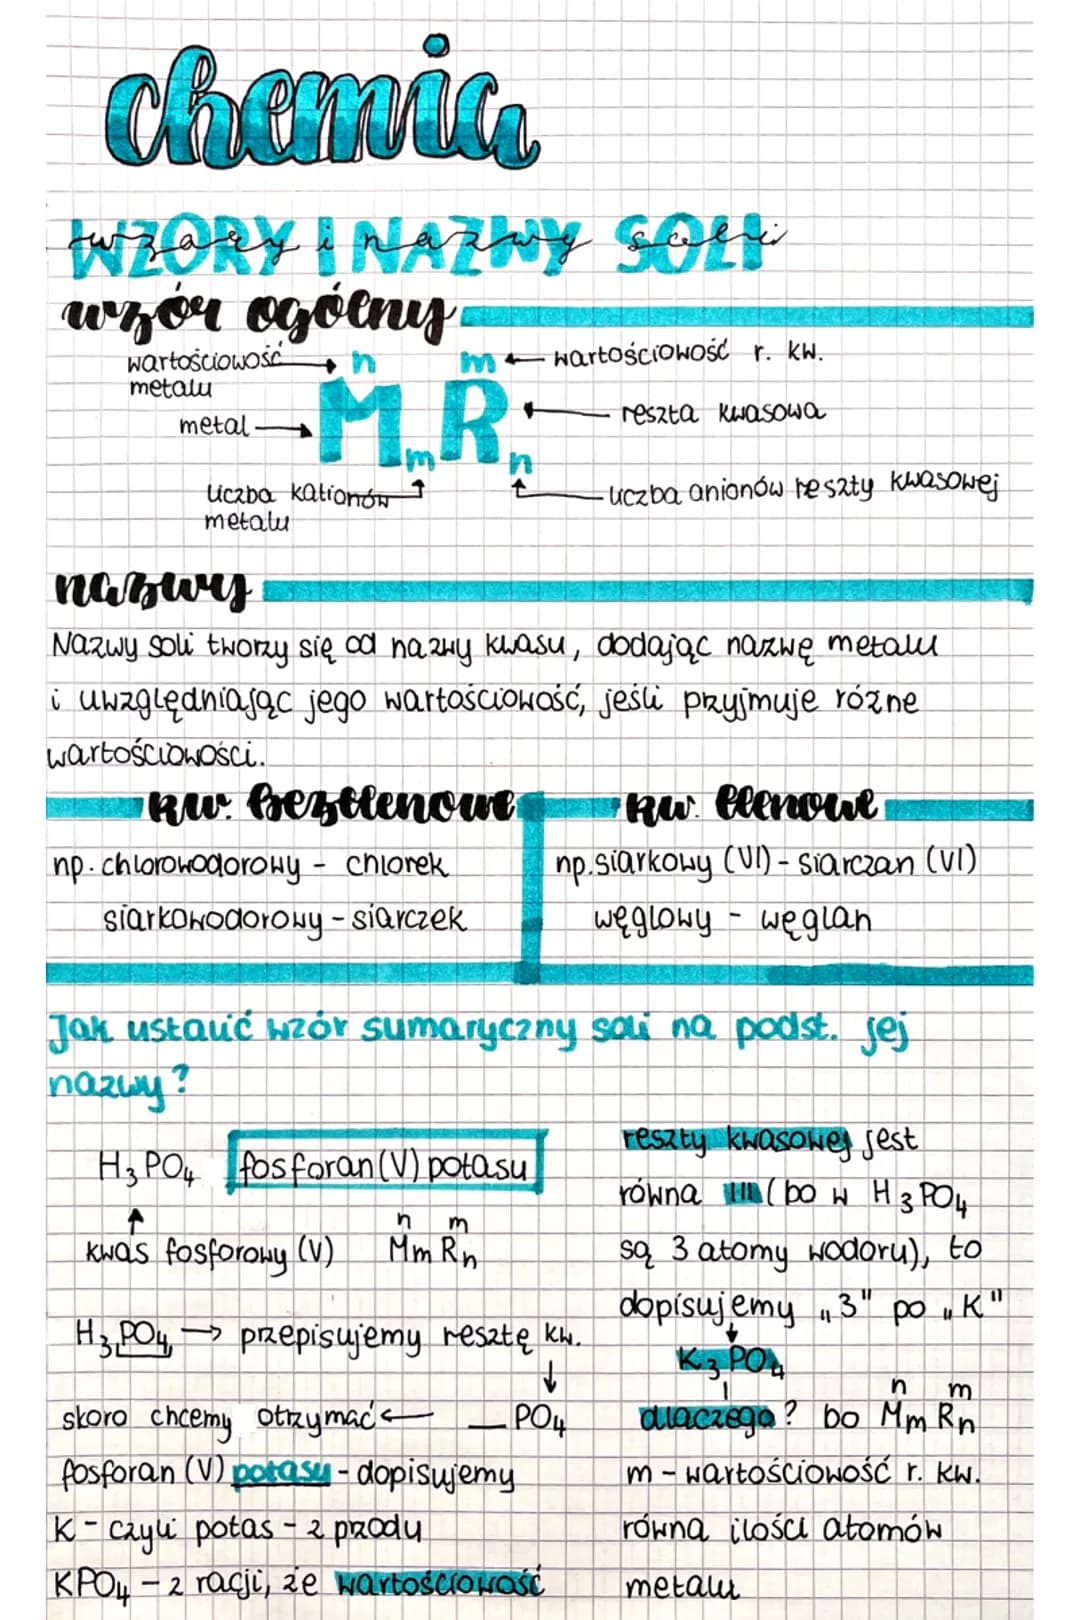 chemia
WZORY I NAZWY SOLI
wzory i nazwy soli
wzór ogólny
wartościowość n m wartościowość r. kw.
metalu
metal → M R reszta kwasowa
m n
liczba kationów liczba anionów reszty kwasowej
metalu
nazwy
Nazwy soli tworzy się od nazwy kwasu, dodając nazwę metalu
i uwzględniając jego wartościowość, jeśli przyjmuje różne
wartościowości.
kw. beztlenowe
np. chlorowodorowy - chlorek
siarkowodorowy - siarczek
kw. tlenowe
np. siarkowy (VI) - siarczan (VI)
węglowy - węglan
Jak ustalić wzór sumaryczny soli na podst. jej
nazwy?
H₃PO₄ fosforan(V) potasu
↑ n m
kwas fosforowy (V) MmRn
H₃PO₄ → przepisujemy resztę kw.
↓
skoro chcemy otrzymać ← _PO₄
fosforan (V) potasu - dopisujemy
K - czyli potas - z przodu
KPO₄ - z racji, że wartościowość
reszty kwasowej jest
równa III (bo w H₃PO₄
są 3 atomy wodoru), to
dopisujemy „3" po „K"
↓
K₃PO₄
n m
dlaczego? bo MmRn
m - wartościowość r. kw.
równa ilości atomów
metalu